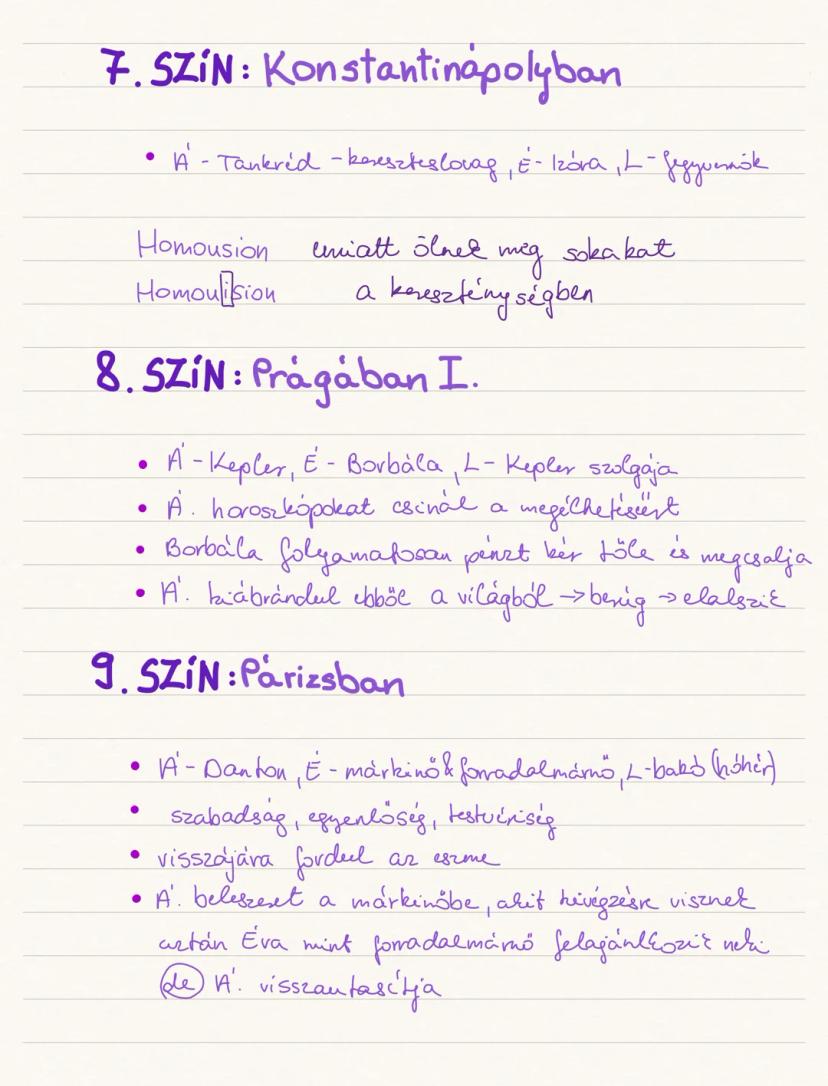 7. SZÍN: Konstantinápolyban
• Á - Tankréd - kereszteslovag, É - Izóra, L - fegyvernök
Homousion emiatt ölnek meg sokakat
Homouision a kereszténységben
8. SZÍN: Prágában I.
• Á - Kepler, É - Borbála, L - Kepler szolgája
• Á. horoszkópokat csinál a megélhetésért
• Borbála folyamatosan pénzt kér tőle és megcsalja
• Á. kiábrándul ebből a világból → berúg → elalszik
9. SZÍN: Párizsban
• Á - Danton, É - márkinő & forradalmárnő, L - bakó (hóhér)
• szabadság, egyenlőség, testvériség
• visszájára fordul az eszme
• Á. beleszeret a márkinőbe, akit kivégzésre visznek
aztán Éva mint forradalmárnő felajánlkozik neki
de Á. visszautasítja